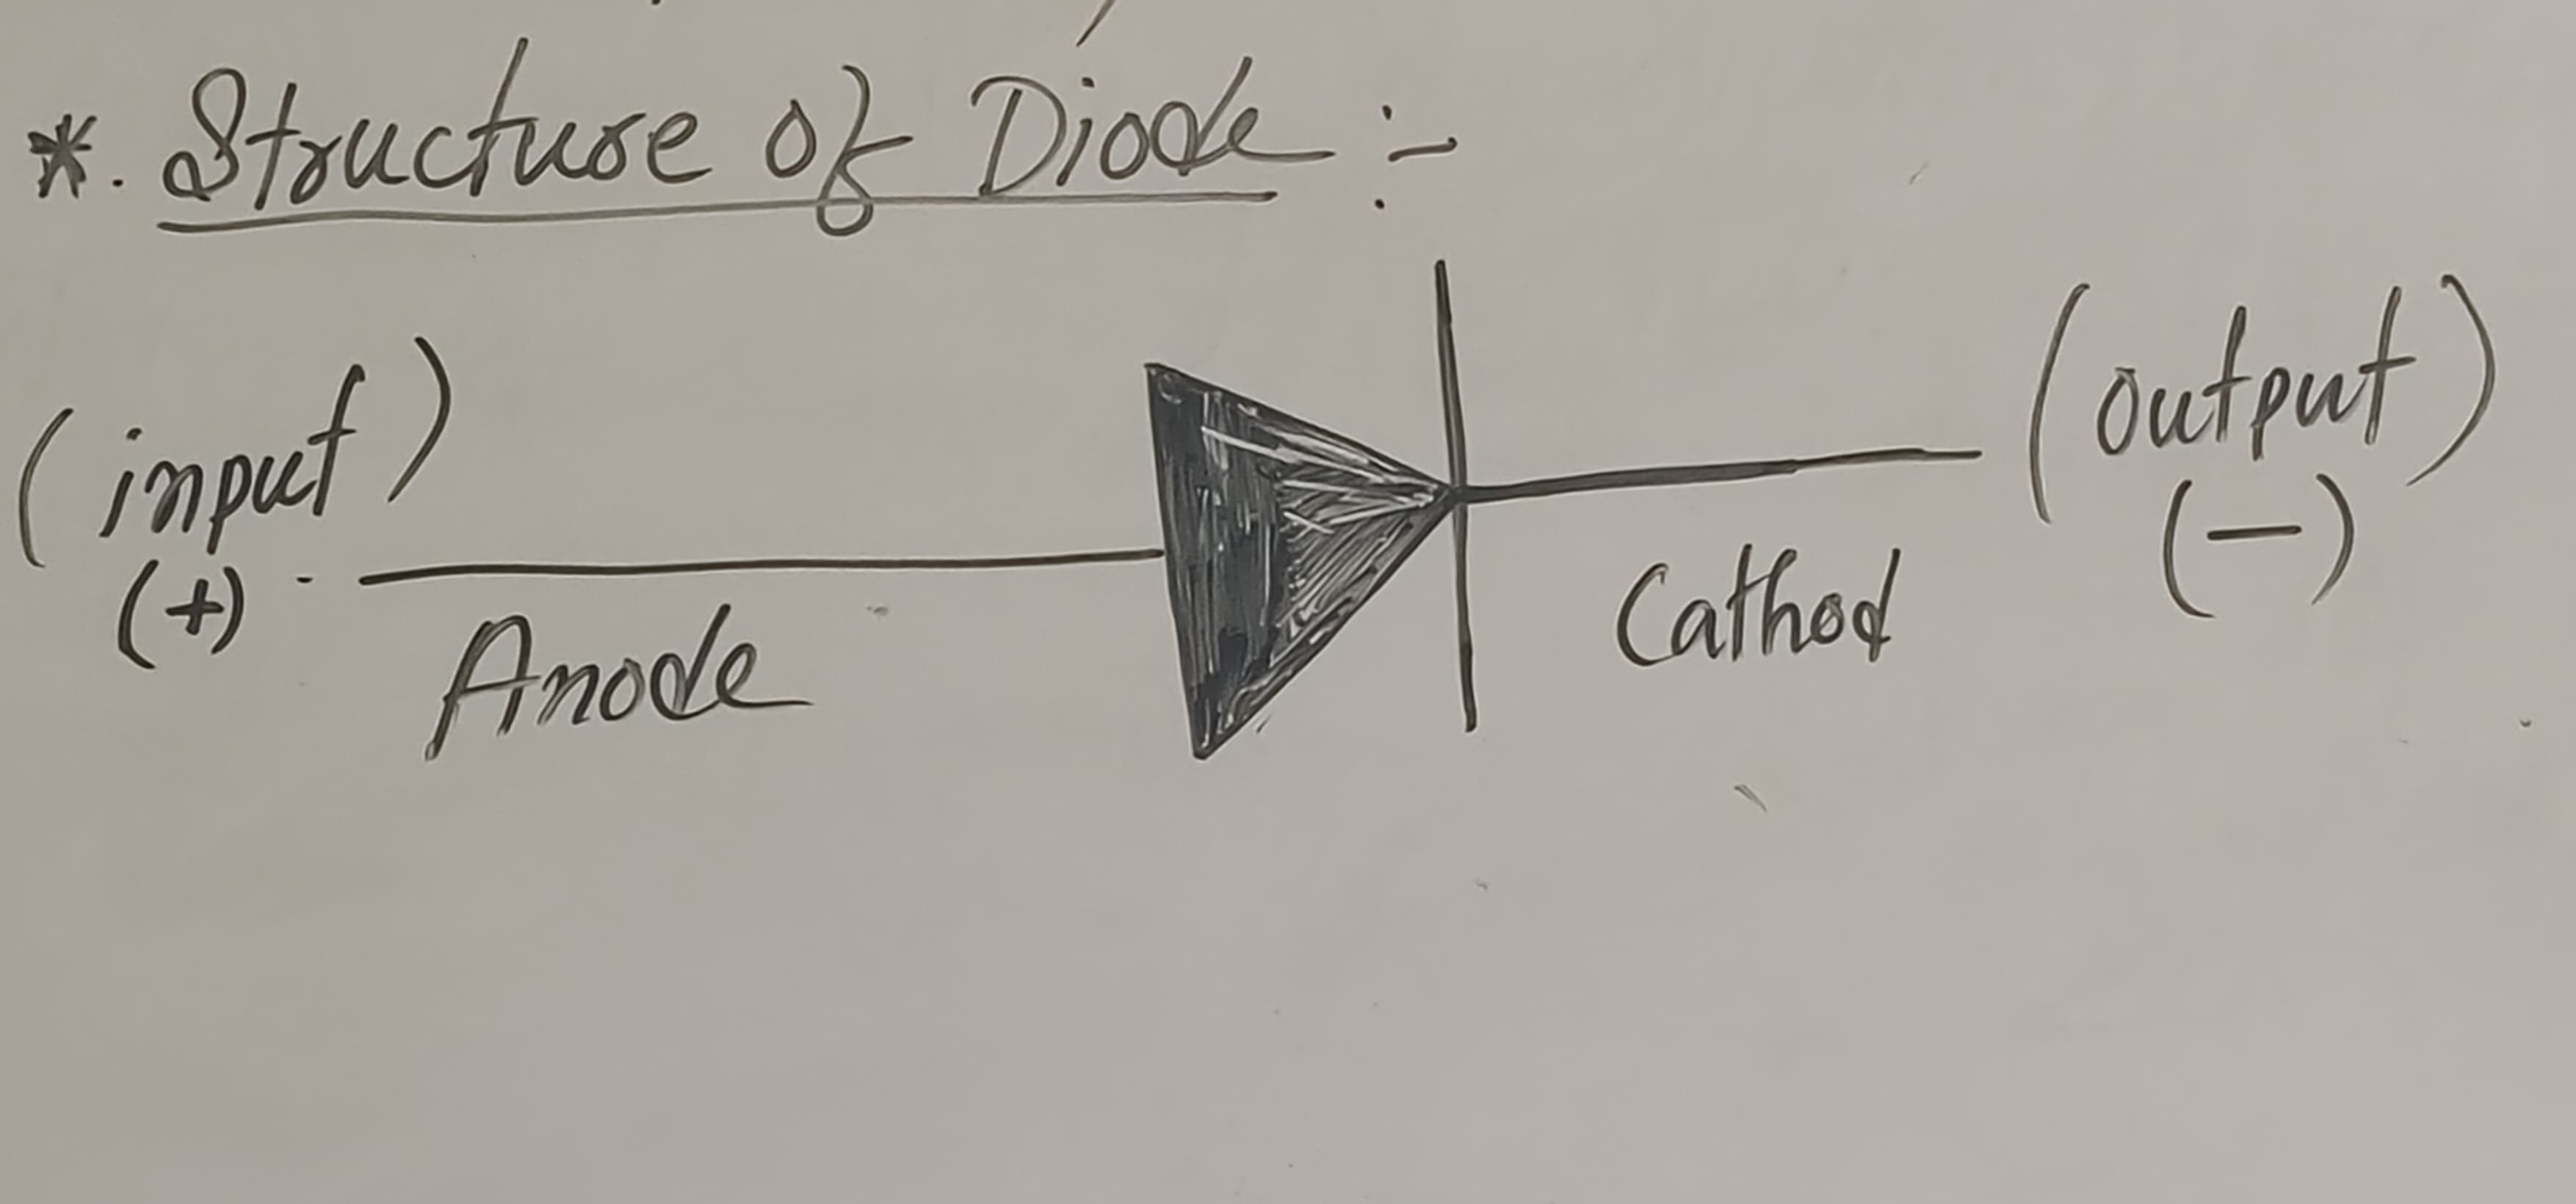 *. Structure of Diode :-
(input)
(+)
Anode
Cathod
(output)
(-)